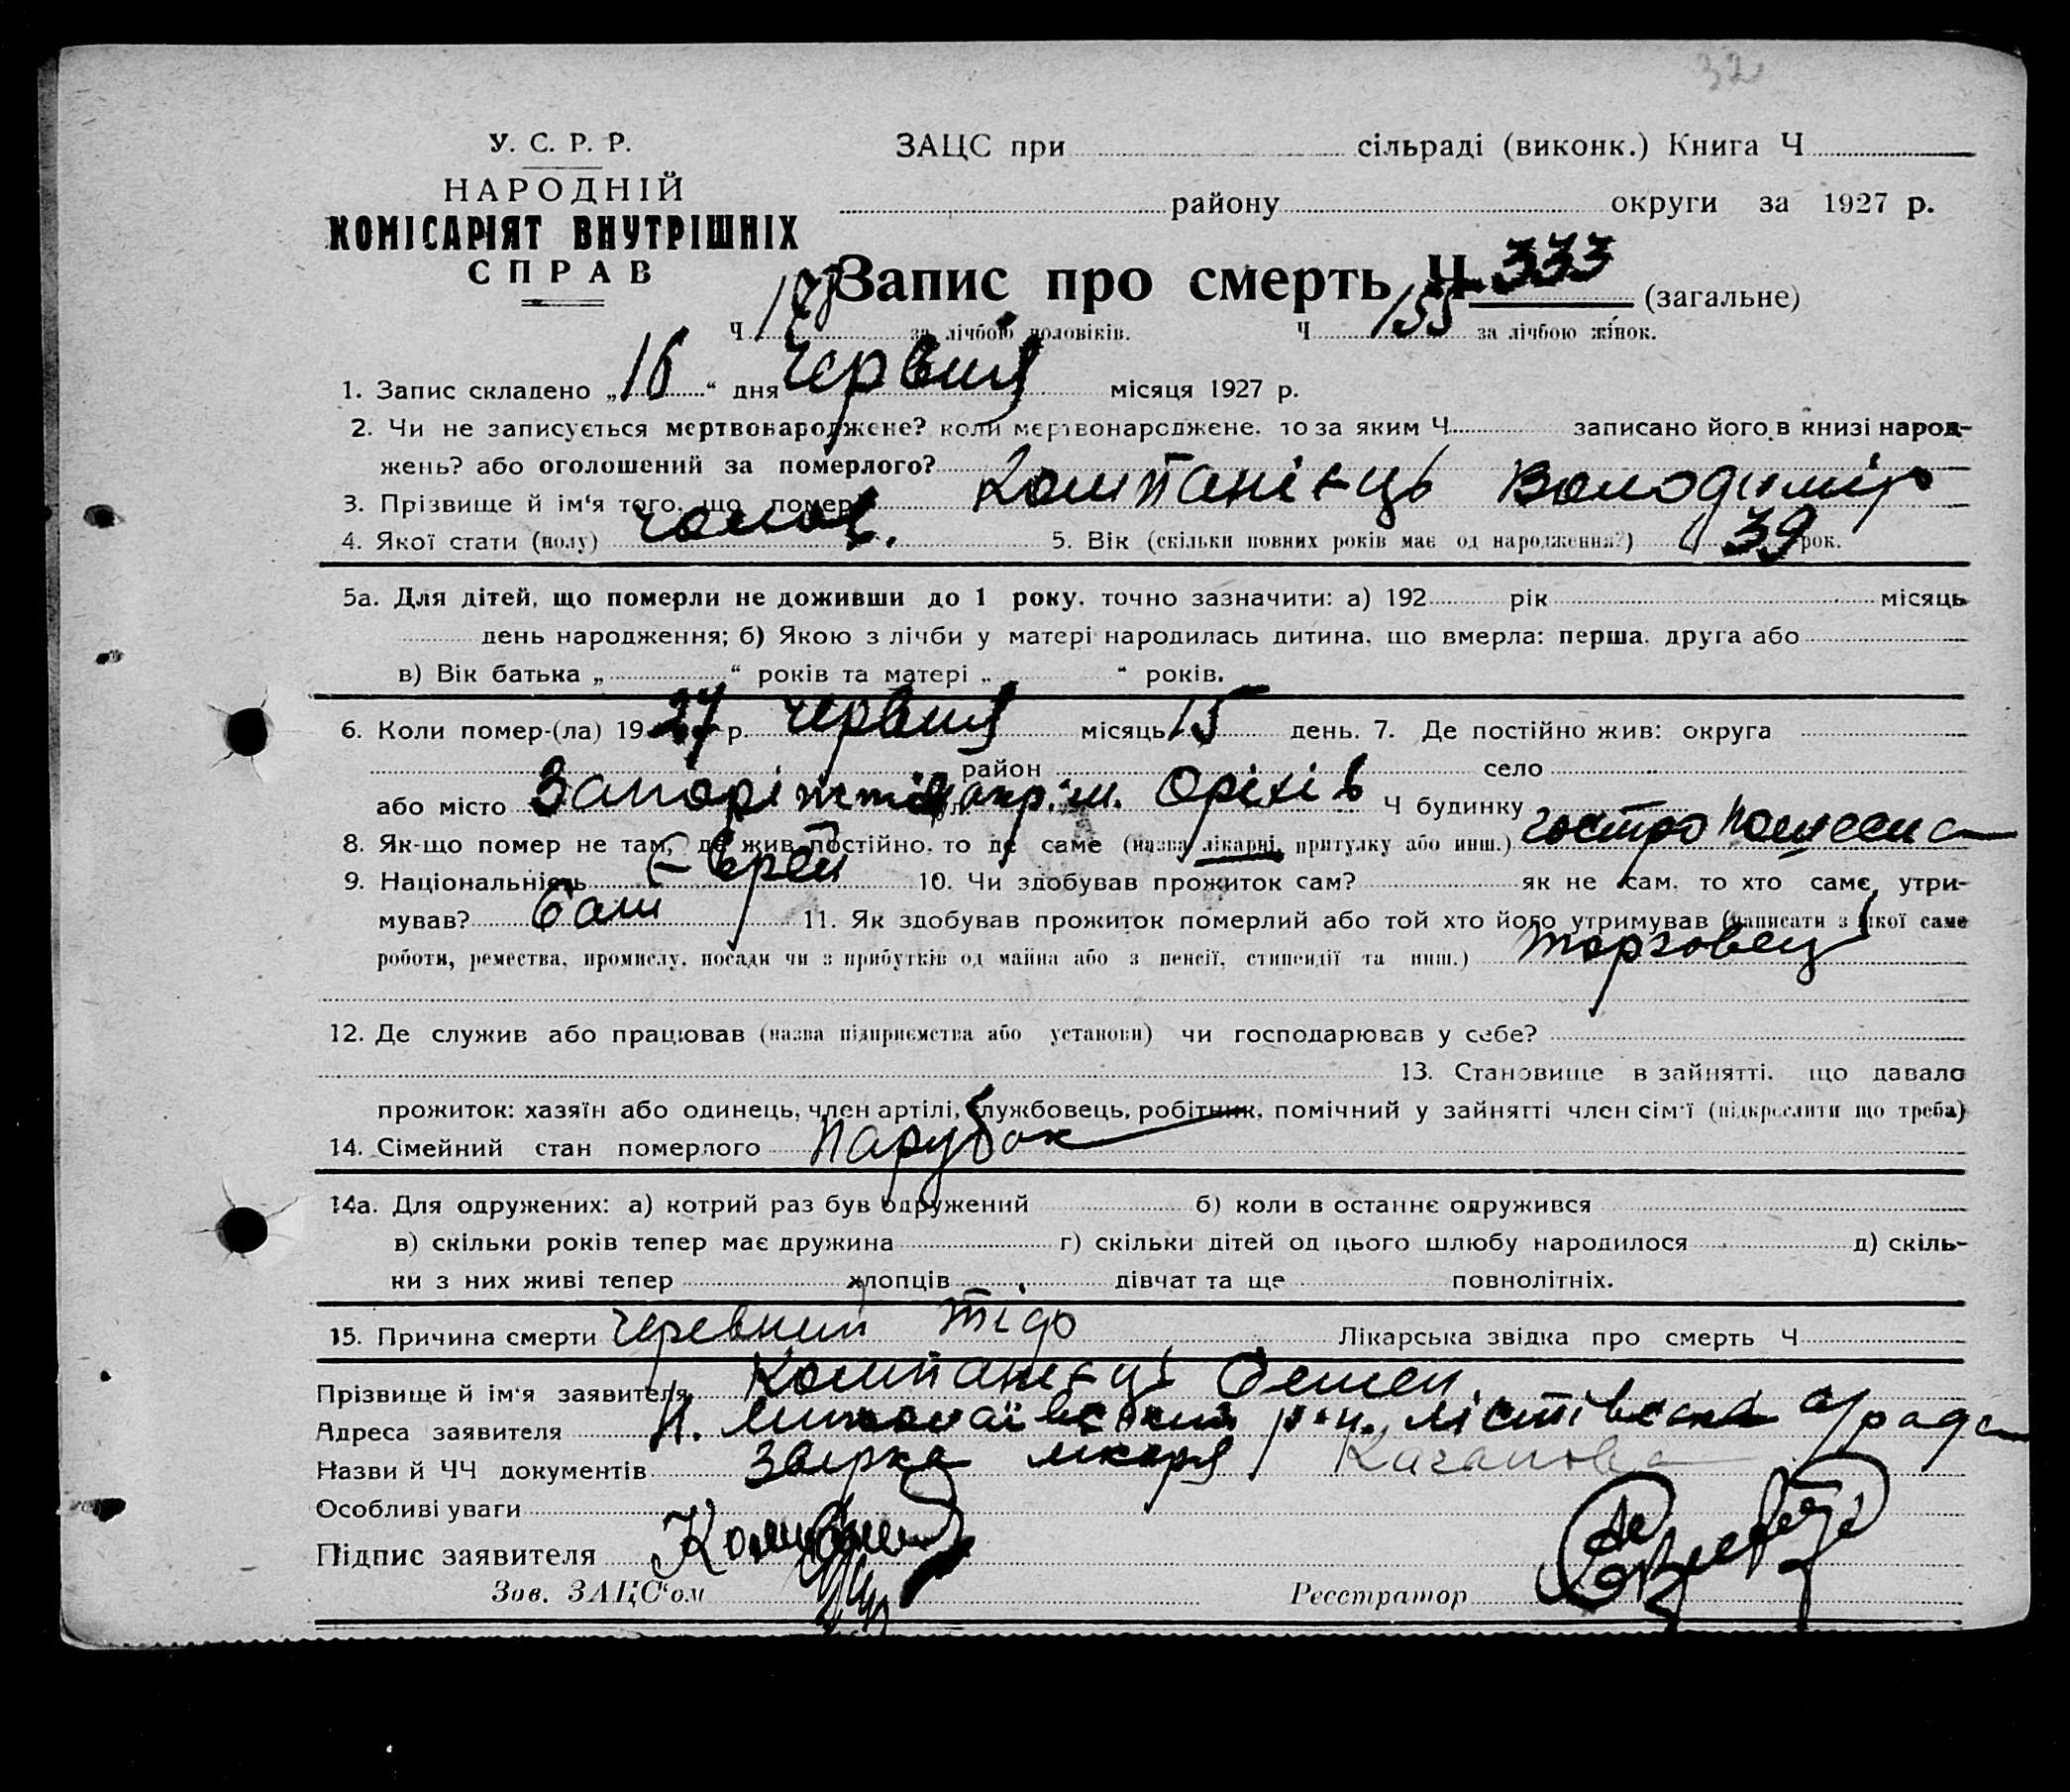 32
У. С. Р. Р.
НАРОДНІЙ
КОМІСАРІЯТ ВНУТРІШНІХ
СПРАВ
ЗАЦС при сільраді (виконк.) Книга Ч
району округи за 1927 р.
Запис про смерть Ч. 333 (загальне)
Ч за лічбою чоловіків. Ч 155 за лічбою жінок.
1. Запис складено „16“ дня Червня місяця 1927 р.
2. Чи не записується мертвонароджене? коли мертвонароджене, то за яким Ч. записано його в книзі народ-
жень? або оголошений за померлого?
3. Прізвище й ім‘я того, що помер Компанієць Володимір
4. Якої стати (полу) чолов. 5. Вік (скільки повних років має од народження?) 39 рок.
5а. Для дітей, що померли не доживши до 1 року, точно зазначити: а) 192 рік місяць
день народження; б) Якою з лічби у матері народилась дитина, що вмерла: перша, друга або
в) Вік батька „ “ років та матері „ “ років.
6. Коли помер-(ла) 1927 р. червня місяць 15 день. 7. Де постійно жив: округа
район село
або місто Запоріжжя окр. м. Оріхів Ч будинку
8. Як-що помер не там, де жив постійно, то де саме (назва лікарні, притулку або инш.)
9. Національність Єврей 10. Чи здобував прожиток сам? як не сам, то хто саме утри-
мував? Сам 11. Як здобував прожиток померлий або той хто його утримував (написати з якої саме
роботи, ремества, промислу, посади чи з прибутків од майна або з пенсії, стипендії та инш.) торговец
12. Де служив або працював (назва підприємства або установи) чи господарював у себе?
13. Становище в зайнятті, що давало
прожиток: хазяїн або одинець, член артілі, службовець, робітник, помічний у зайнятті член сім‘ї (підкреслити що треба)
14. Сімейний стан померлого парубок
14а. Для одружених: а) котрий раз був одружений б) коли в останнє одружився
в) скільки років тепер має дружина г) скільки дітей од цього шлюбу народилося д) скіль-
ки з них живі тепер хлопців дівчат та ще повнолітніх.
15. Причина смерти черевний тіф Лікарська звідка про смерть Ч
Прізвище й ім‘я заявителя Компанієць Семен.
Адреса заявителя р-н.
Назви й ЧЧ документів лікаря
Особливі уваги
Підпис заявителя
Зав. ЗАЦС‘ом Реєстратор